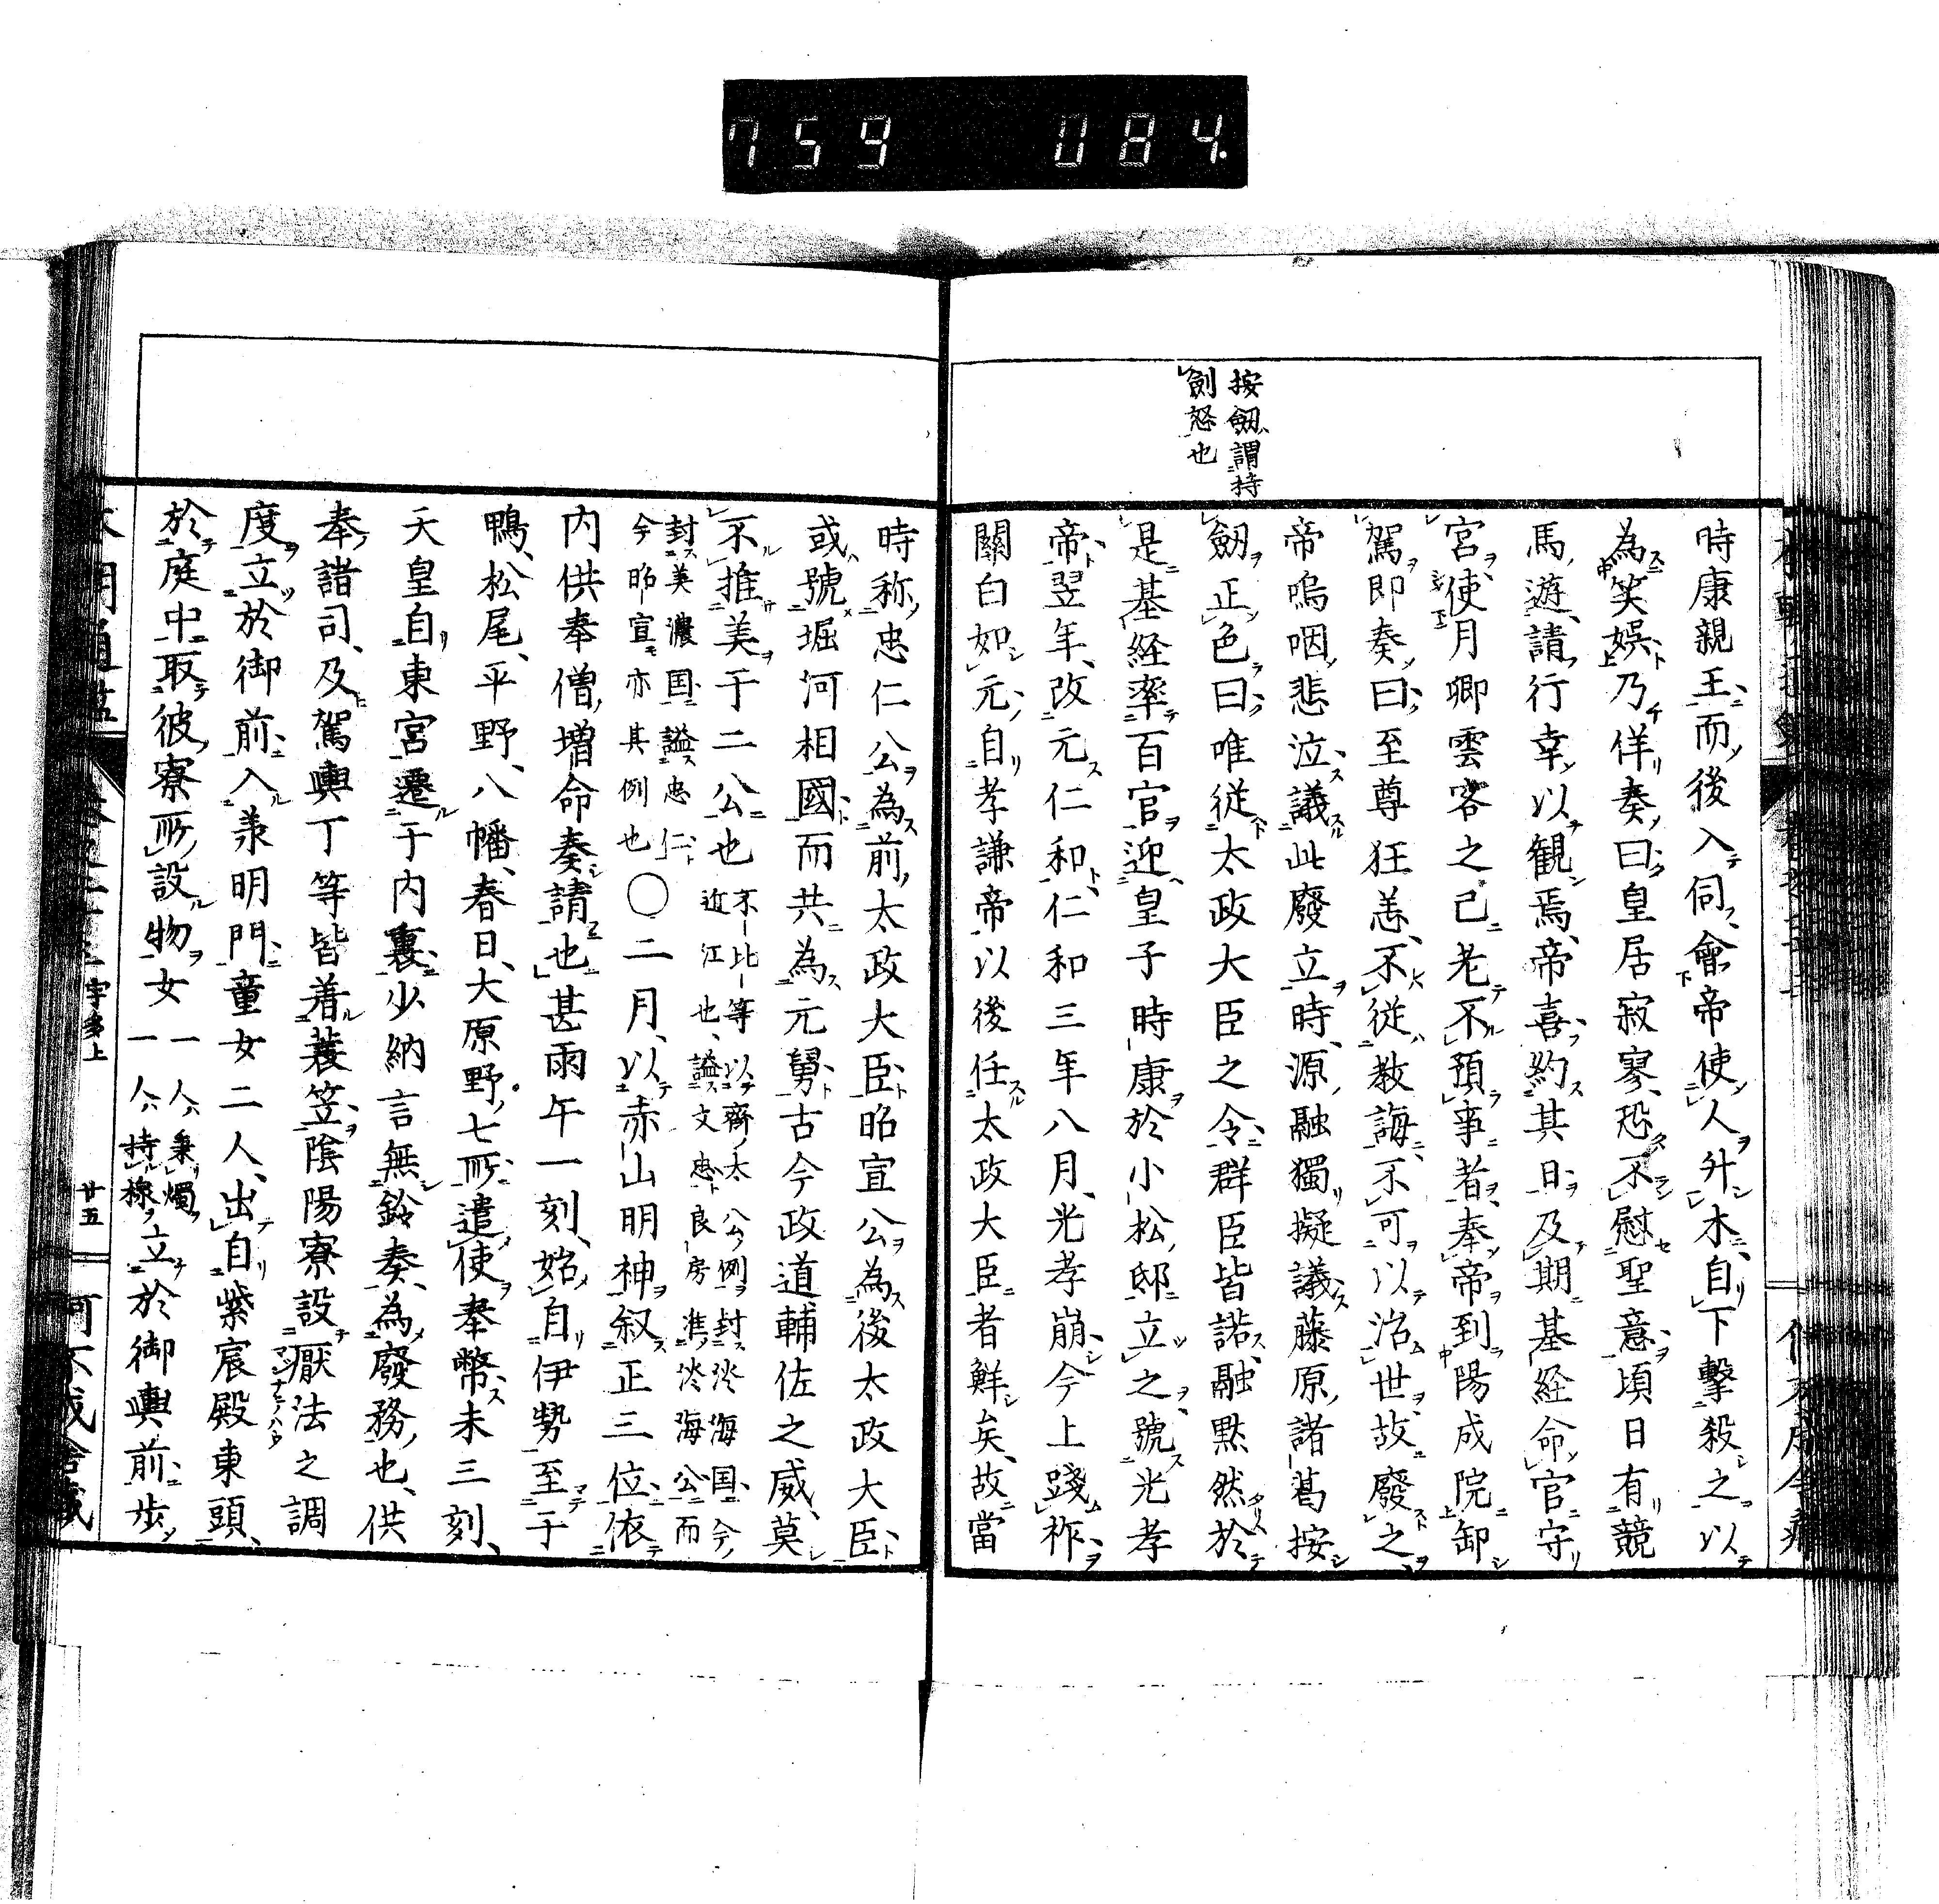 759 084.
按劔謂持
劍怒也
時康親王而後入伺會帝使人升木自下擊殺之以
為笑娯乃佯奏曰皇居寂寥恐不慰聖意頃日有競
馬遊請行幸以観焉帝喜約其日及期基経命官守
宮使月卿雲客之已老不預事者奉帝到陽成院卸
駕即奏曰至尊狂恙不從教誨不可以治世故廢之
帝嗚咽悲泣議此廢立時源融獨擬議藤原諸葛按
劔正色曰唯從太政大臣之令群臣皆諾融黙然於
是基経率百官迎皇子時康於小松邸立之號光孝
帝翌年改元仁和仁和三年八月光孝崩今上踐祚
關白如元自孝謙帝以後任太政大臣者鮮矣故當
時称忠仁公為前太政大臣昭宣公為後太政大臣
或號堀河相國而共為元舅古今政道輔佐之威莫
不推美于二公也 不比等以齊太公例封淡海国今
近江也謚文忠良房準淡海公而
封美濃国謚忠仁
今昭宣亦其例也 〇二月以赤山明神叙正三位依
内供奉僧増命奏請也甚雨午一刻始自伊勢至于
鴨松尾平野八幡春日大原野七所遣使奉幣未三刻
天皇自東宮遷于内裏少納言無鈴奏為廢務也供
奉諸司及駕輿丁等皆着蓑笠陰陽寮設厭法之調
度立於御前入承明門童女二人出自紫宸殿東頭
於庭中取彼寮所設物女一人秉燭
一人持 立於御輿前歩
宇多上
廿五